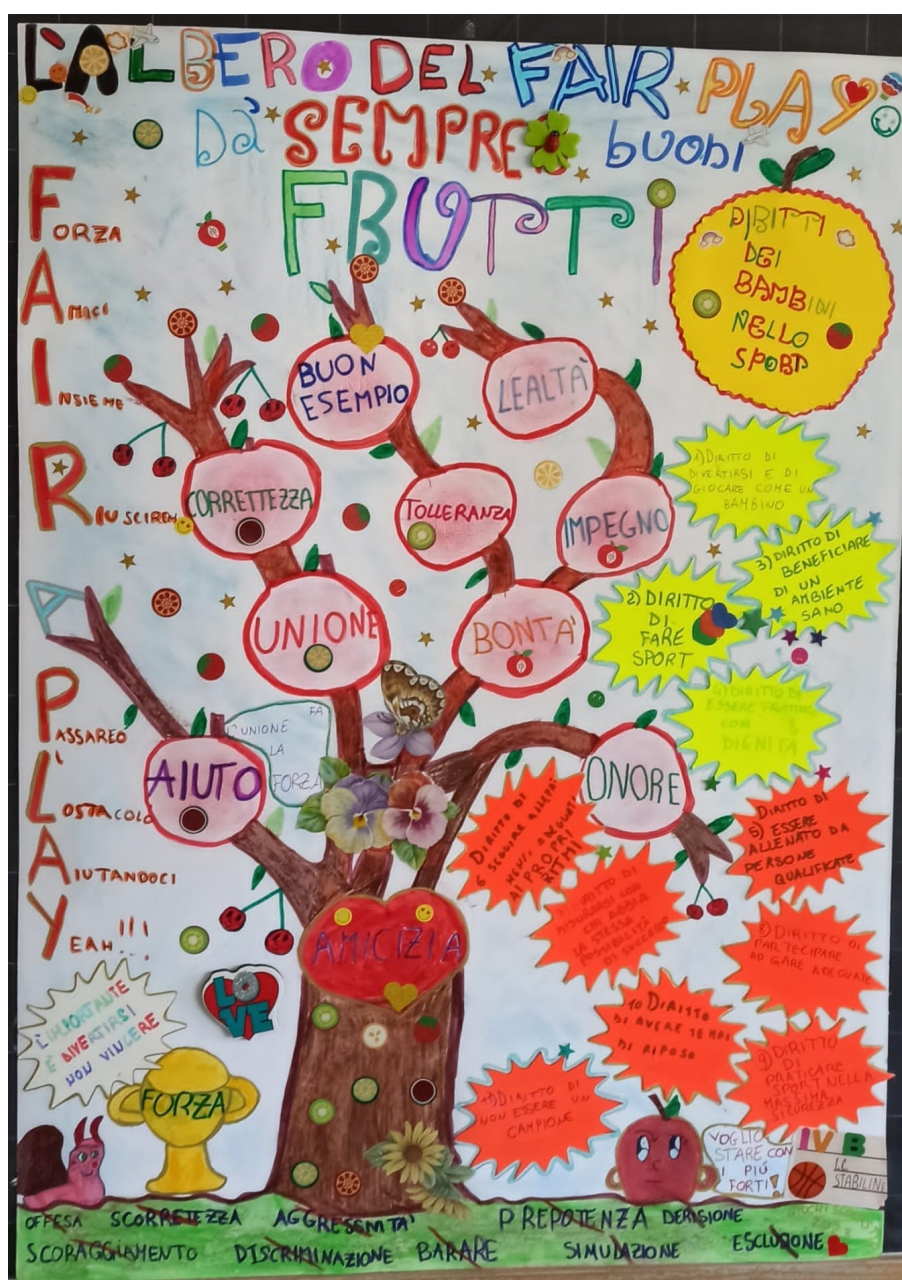 L'ALBERO DEL FAIR PLAY
DÀ SEMPRE BUONI
FRUTTI
FORZA
AMICI
INSIEME
RIUSCIREMO
A
PASSARE
L'OSTACOLO
AIUTANDOCI
YEAH!!!
DIRITTI
DEI
BAMBINI
NELLO
SPORT
BUON
ESEMPIO
LEALTÀ
CORRETTEZZA
TOLLERANZA
IMPEGNO
UNIONE
BONTA'
AIUTO
L'UNIONE FA
LA
FORZA
ONORE
AMICIZIA
LOVE
1) DIRITTO DI
DIVERTIRSI E DI
GIOCARE COME UN
BAMBINO
2) DIRITTO
DI
FARE
SPORT
3) DIRITTO DI
BENEFICIARE
DI UN
AMBIENTE
SANO
4) DIRITTO DI
ESSERE TRATTATO
CON
DIGNITÀ
DIRITTO DI
5) ESSERE
ALLENATO DA
PERSONE
QUALIFICATE
DIRITTO DI
6 SEGUIRE ALLENA
MENTI ADEGUATI
AI PROPRI
RITMI
DIRITTO DI
MISURARSI CON
CHI ABBIA
LE STESSE
POSSIBILITÀ
DI SUCCESSO
8) DIRITTO DI
PARTECIPARE
AD GARE ADEGUATE
9) DIRITTO
DI
PRATICARE
SPORT NELLA
MASSIMA
SICUREZZA
10 DIRITTO
DI AVERE TEMPI
DI RIPOSO
11) DIRITTO DI
NON ESSERE UN
CAMPIONE
L'IMPORTANTE
È DIVERTIRSI
NON VINCERE
FORZA
VOGLIO
STARE CON
I PIÚ
FORTI!
IV B
LE
STABILINI
OFFESA SCORRETEZZA AGGRESSIVITA' PREPOTENZA DERISIONE
SCORAGGIAMENTO DISCRIMINAZIONE BARARE SIMULAZIONE ESCLUSIONE